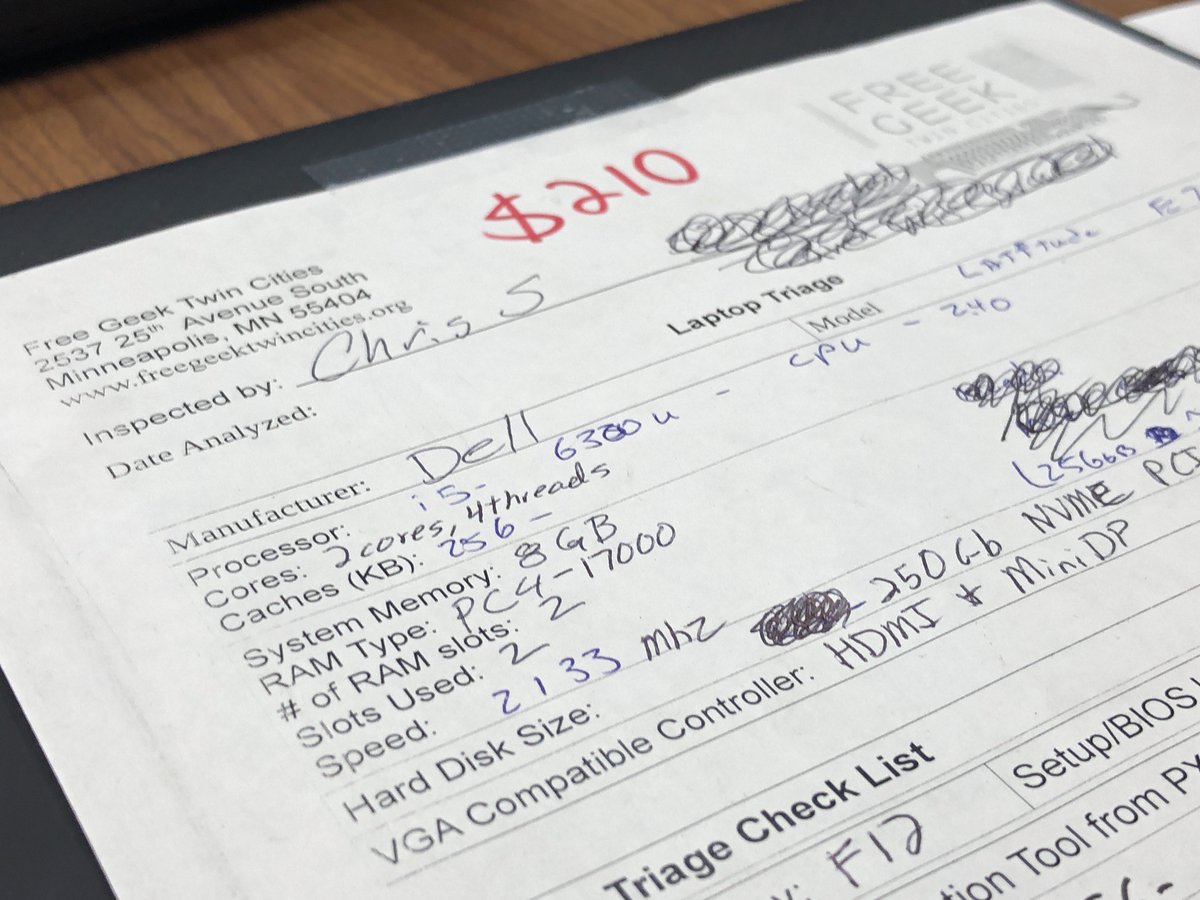 FREE
GEEK
$210
Free Geek Twin Cities
2537 25th Avenue South
Minneapolis, MN 55404
www.freegeektwincities.org
Inspected by: Chris S
Date Analyzed:
Laptop Triage
Manufacturer: Dell Model Latitude E7
Processor: i5- 6300u - CPU - 2.40
Cores: 2 cores, 4 threads
Caches (KB): 256 -
System Memory: 8 GB
RAM Type: PC4-17000
# of RAM slots: 2
Slots Used: 2
Speed: 2133 mhz
256GB
Hard Disk Size: 250Gb NVME PCI
VGA Compatible Controller: HDMI + MiniDP
Triage Check List
F12 Setup/BIOS
Tool from